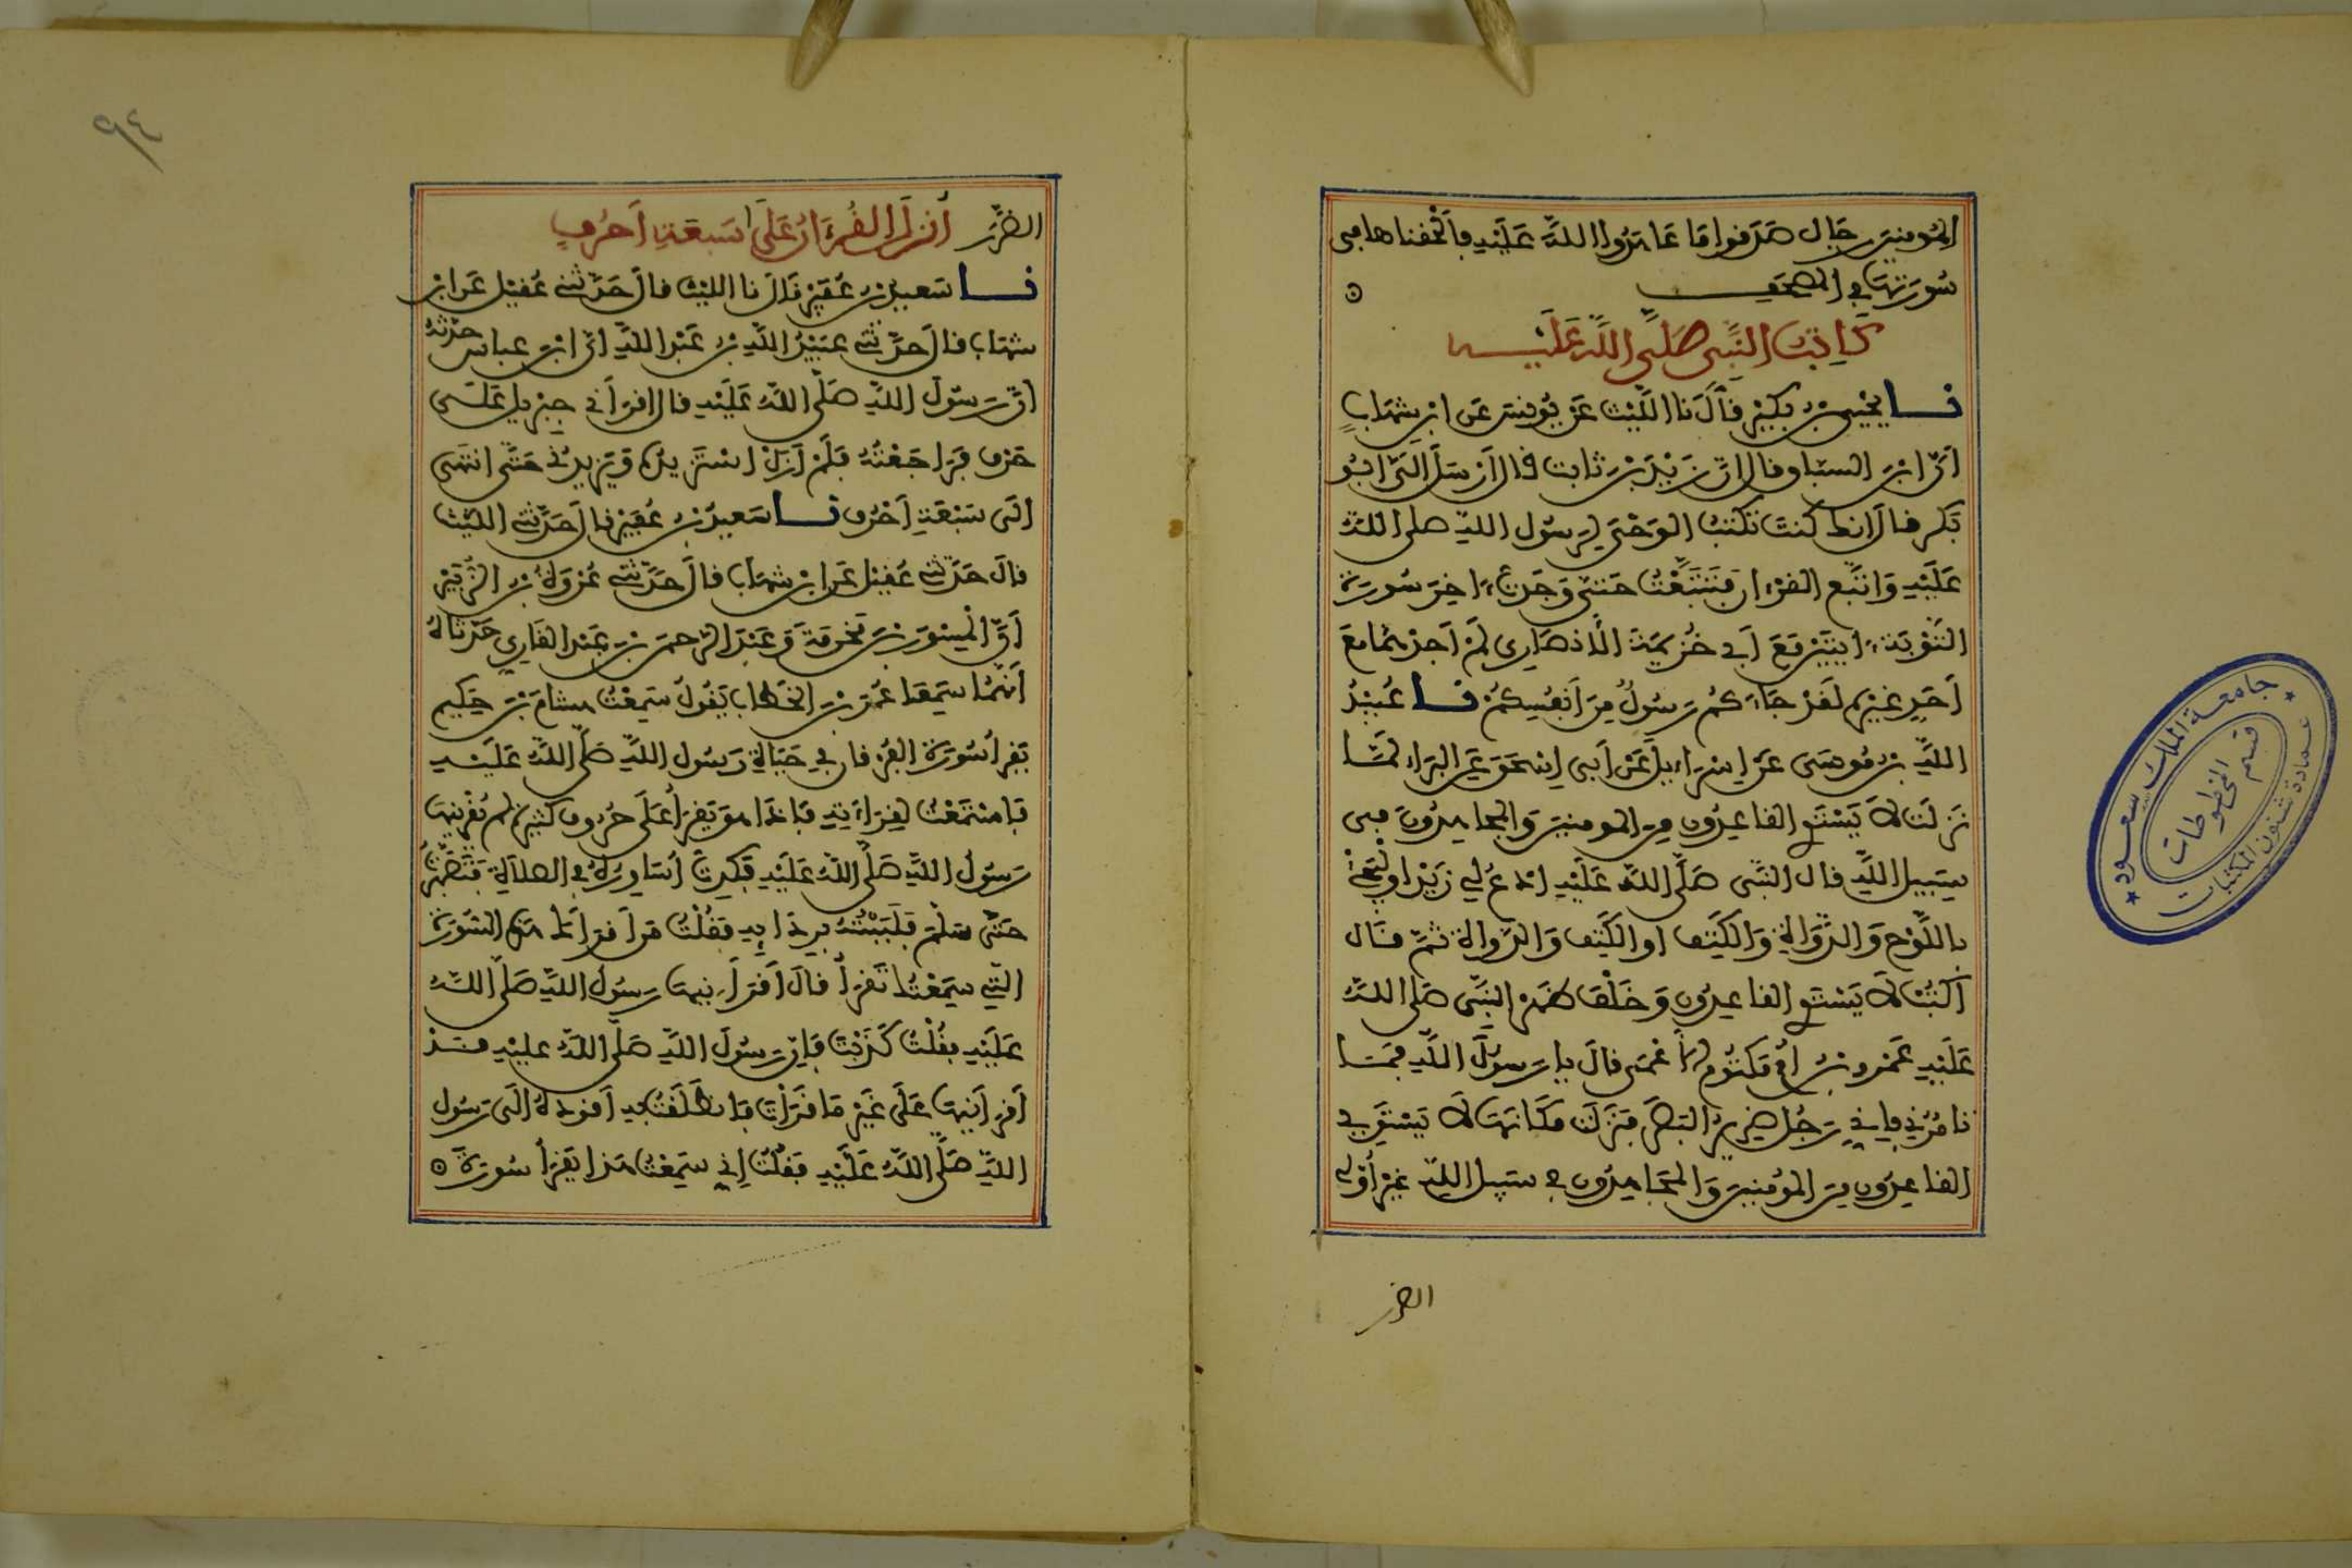 المومنين رجال صدقوا ما عاهدوا الله عليه فألحقناها في
سورتها في المصحف
كاتب النبي صلى الله عليه
نا يحيى بن بكير قال نا الليث عن يونس عن ابن شهاب
ان ابن السباق قال ان زيد بن ثابت قال ارسل الي ابو
بكر فقال انك كنت تكتب الوحي لرسول الله صلى الله
عليه واتبع القرءان فتتبعت حتى وجدت ءاخر سورة
التوبة ءايتين مع ابي خزيمة الانصاري لم اجدهما مع
احد غيره لقد جاءكم رسول من انفسكم نا عبيد
الله بن موسى عن اسراءيل عن ابي اسحق عن البراء لما
نزلت لا يستوي القاعدون من المومنين والمجاهدون في
سبيل الله قال النبي صلى الله عليه ادع لي زيدا وليجئ
باللوح والدواة والكتف او الكتف والدواة ثم قال
اكتب لا يستوي القاعدون وخلف ظهر النبي صلى الله
عليه عمرو بن أم مكتوم الاعمى قال يا رسول الله فما
تامرني فاني رجل ضرير البصر فنزلت مكانها لا يستوي
القاعدون من المومنين والمجاهدون في سبيل الله غير أولي
الضرر
٩٤
الضرر أنزل القرءان على سبعة أحرف
نا سعيد بن عفير قال نا الليث قال حدثني عقيل عن ابن
شهاب قال حدثني عبيد الله بن عبد الله ان ابن عباس حدثه
ان رسول الله صلى الله عليه قال اقرأني جبريل على
حرف فراجعته فلم ازل استزيده ويزيدني حتى انتهى
الى سبعة احرف نا سعيد بن عفير قال حدثني الليث
قال حدثني عقيل عن ابن شهاب قال حدثني عروة بن الزبير
أن المسور بن مخرمة وعبد الرحمن بن عبد القاري حدثاه
أنهما سمعا عمر بن الخطاب يقول سمعت هشام بن حكيم
يقرأ سورة الفرقان في حياة رسول الله صلى الله عليه
فاستمعت لقراءته فاذا هو يقرأ على حروف كثيرة لم يقرئنيها
رسول الله صلى الله عليه فكدت أساوره في الصلاة فتصبرت
حتى سلم فلببته بردايه فقلت من أقرأك هذه السورة
التي سمعتك تقرأ قال أقرأنيها رسول الله صلى الله
عليه فقلت كذبت فإن رسول الله صلى الله عليه قد
أقرأنيها على غير ما قرأت فانطلقت به أقوده الى رسول
الله صلى الله عليه فقلت إني سمعت هذا يقرأ سورة
جامعة الملك سعود
عمادة شئون المكتبات
قسم المخطوطات